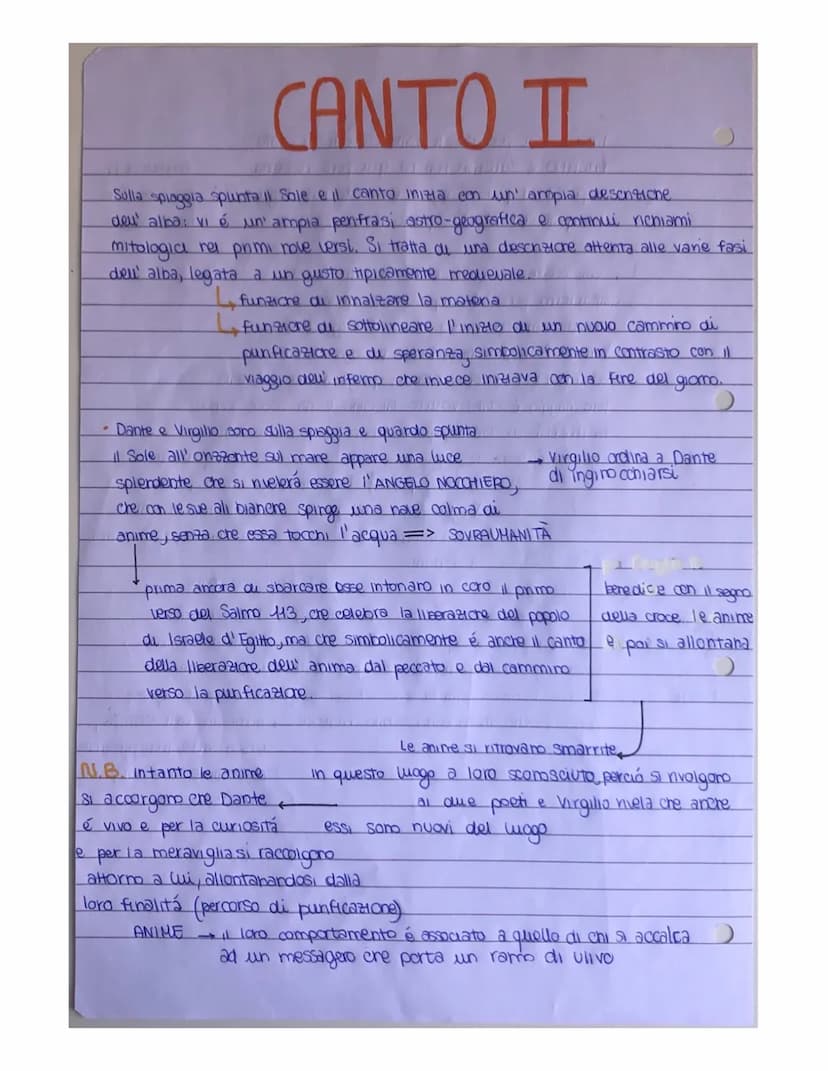 CANTO II
Sulla spiaggia spunta il Sole e il canto inizia con un' ampia descrizione
dell' alba: vi é un' ampia perifrasi astro-geografica e continui richiami
mitologici nei primi nove versi. Si tratta di una descrizione attenta alle varie fasi
dell' alba, legata a un gusto tipicamente medievale.
↳ funzione di innalzare la materia
↳ funzione di sottolineare l'inizio di un nuovo cammino di
purificazione e di speranza, simbolicamente in contrasto con il
viaggio dell' inferno che invece iniziava con la fine del giorno.
• Dante e Virgilio sono sulla spiaggia e quando spunta
il Sole all' orizzonte sul mare appare una luce
splendente che si rivelerá essere l'ANGELO NOCCHIERO,
che con le sue ali bianche spinge una nave colma di
anime, senza che essa tocchi l'acqua => SOVRAUMANITÀ
→ Virgilio ordina a Dante
di inginocchiarsi
prima ancora di sbarcare esse intonano in coro il primo
verso del Salmo 113, che celebra la liberazione del popolo
di Israele d'Egitto, ma che simbolicamente é anche il canto
della liberazione dell' anima dal peccato e dal cammino
verso la purificazione.
benedice con il segno
della croce le anime
e poi si allontana
Le anime si ritrovano smarrite
in questo luogo a loro sconosciuto, perció si rivolgono
ai due poeti e Virgilio rivela che anche
essi sono nuovi del luogo
N.B. intanto le anime
si accorgono che Dante ←
é vivo e per la curiositá
e per la meraviglia si raccolgono
attorno a lui, allontanandosi dalla
loro finalitá (percorso di purificazione)
ANIME → il loro comportamento é associato a quello di chi si accalca
ad un messagero che porta un ramo di ulivo